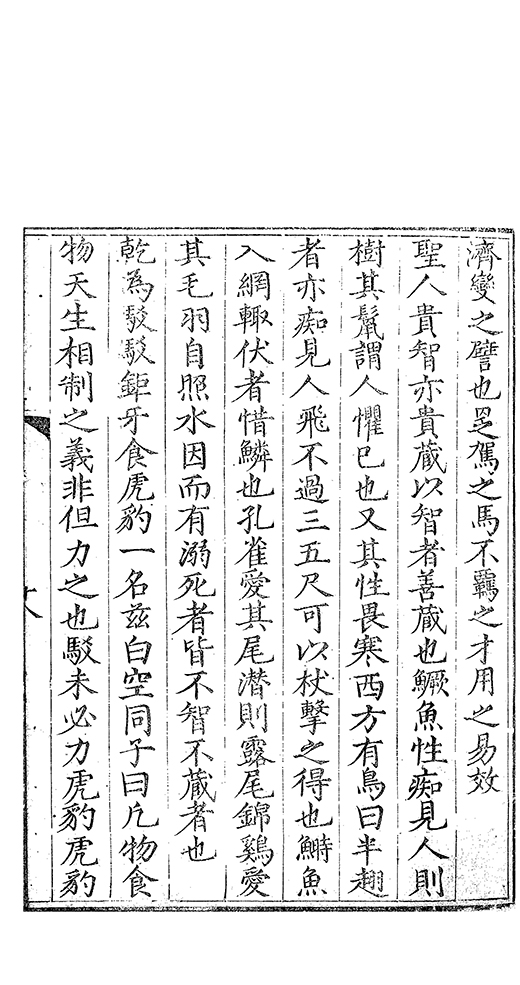 濟變之譬也是駕之馬不羈之才用之易效
聖人貴智亦貴蔵以智者善蔵也鱖魚性痴見人則
樹其鬣謂人懼已也又其性畏寒西方有鳥曰半翅
者亦痴見人飛不過三五尺可以杖擊之得也鰣魚
入網輙伏者惜鱗也孔雀愛其尾潜則露尾錦鷄愛
其毛羽自照水因而有溺死者皆不智不蔵者也
乾為駁駁鉅牙食虎豹一名兹白空同子曰凢物食
物天生相制之義非但力之也駁未必力虎豹虎豹